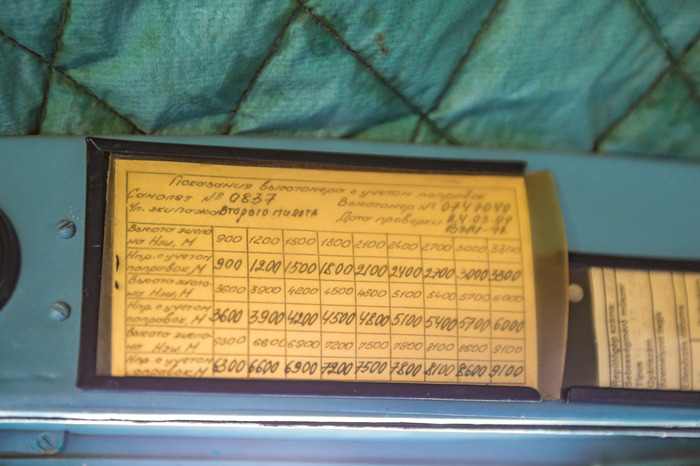 Показания высотомера с учетом поправок
Самолет № 0837 Высотомер № 0747040
Чл. экипажа Второго пилота Дата проверки
Высота эшело
на Нэш, М 900 1200 1500 1800 2100 2400 2700 3000 3300
Нпр. с учетом
поправок, М 900 1200 1500 1800 2100 2400 2700 3000 3300
Высота эшело
на Нэш, М 3600 3900 4200 4500 4800 5100 5400 5700 6000
Нпр. с учетом
поправок, М 3600 3900 4200 4500 4800 5100 5400 5700 6000
Высота эшело
на Нэш, М 6300 6600 6900 7200 7500 7800 8100 8600 9100
Нпр. с учетом
поправок, М 6300 6600 6900 7200 7500 7800 8100 8600 9100
Repülőgép száma
Sebességmérő műszer
Típus
Gyáriszám